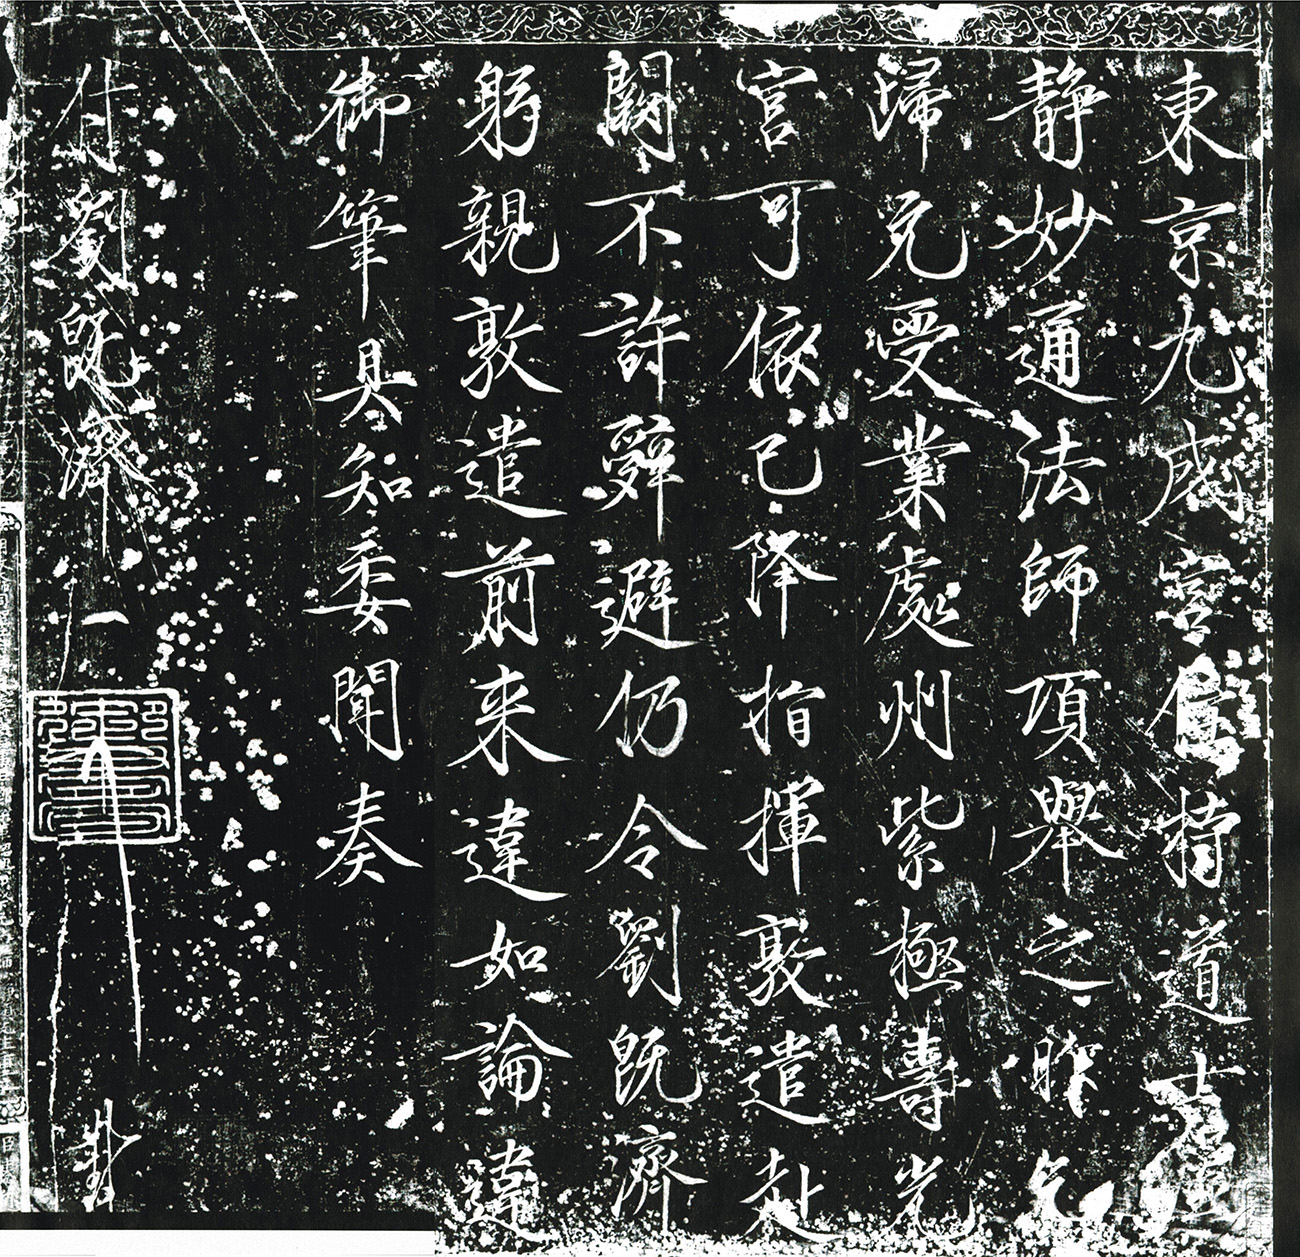 東京九成宮住持道士虛
靜妙通法師項舉之昨乞
歸元受業處州紫極壽光
宮可依已降指揮敦遣赴
闕不許辭避仍令劉既濟
躬親敦遣前来違如論違
御筆具知委聞奏
付劉既濟
一
封